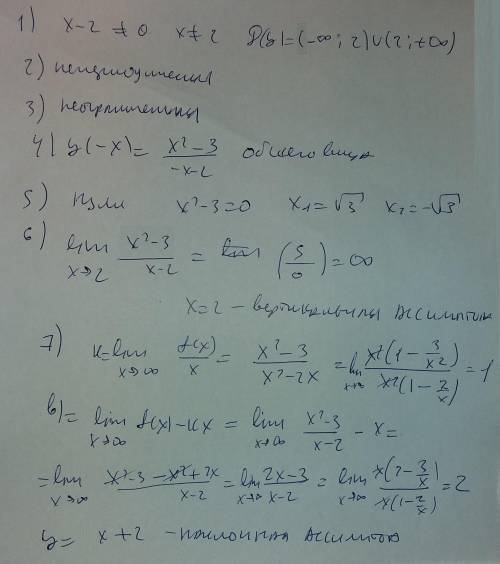 1) x-2 ≠ 0 x ≠ 2 D(y)=(-∞; 2)∪(2;+∞)
2) непериодический
3) неограниченный
4) y(-x)= \frac{x²-3}{-x-2} общего вида
5) нули x²-3=0 x₁=√3 x₂=-√3
6) \lim_{x→2} \frac{x²-3}{x-2} = (\frac{5}{0})=∞
x=2 - вертикальный ассимптота
7) k=\lim_{x→∞} \frac{f(x)}{x} = \frac{x²-3}{x²-2x} = \lim_{x→∞} \frac{x²(1-\frac{3}{x²})}{x²(1-\frac{2}{x})} = 1
b)= \lim_{x→∞} f(x)-kx = \lim_{x→∞} \frac{x²-3}{x-2} - x=
=\lim_{x→∞} \frac{x²-3-x²+2x}{x-2} = \lim_{x→∞} \frac{2x-3}{x-2} = \lim_{x→∞} \frac{x(2-\frac{3}{x})}{x(1-\frac{2}{x})} = 2
y= x+2 - наклонная ассимптота